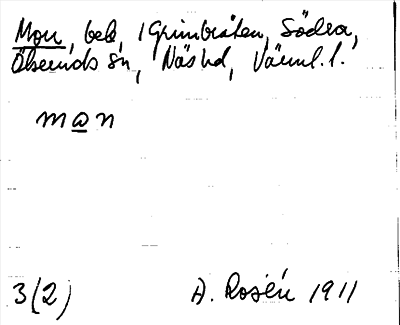 Mon, beb, i Grimbråten, Södra,
Ölseruds sn, Näs hd, Värml. l.
m@n
3(2) A. Rosén 1911